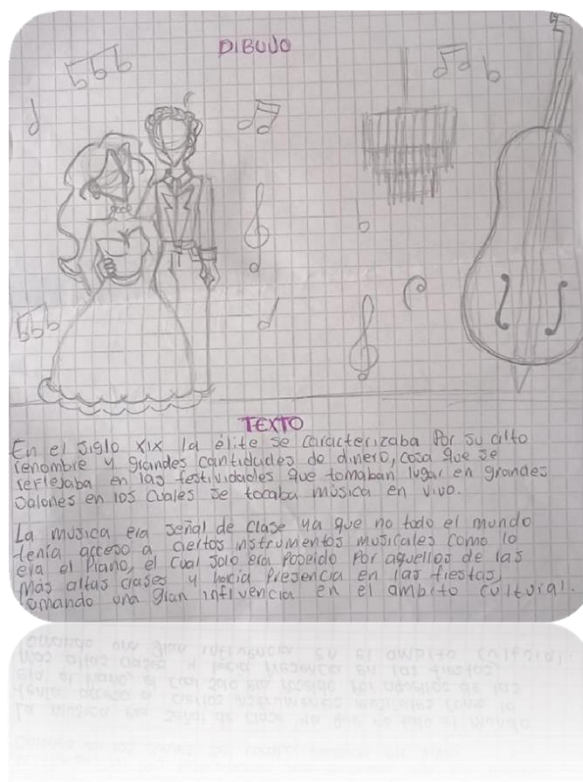 DIBUJO
TEXTO
En el siglo XIX la élite se caracterizaba por su alto
renombre y grandes cantidades de dinero, cosa que se
reflejaba en las festividades que tomaban lugar en grandes
salones en los cuales se tocaba música en vivo.
La música era señal de clase ya que no todo el mundo
tenía acceso a ciertos instrumentos musicales como lo
era el piano, el cual solo era poseido por aquellos de las
más altas clases y hacía presencia en las fiestas,
tomando una gran influencia en el ámbito cultural.